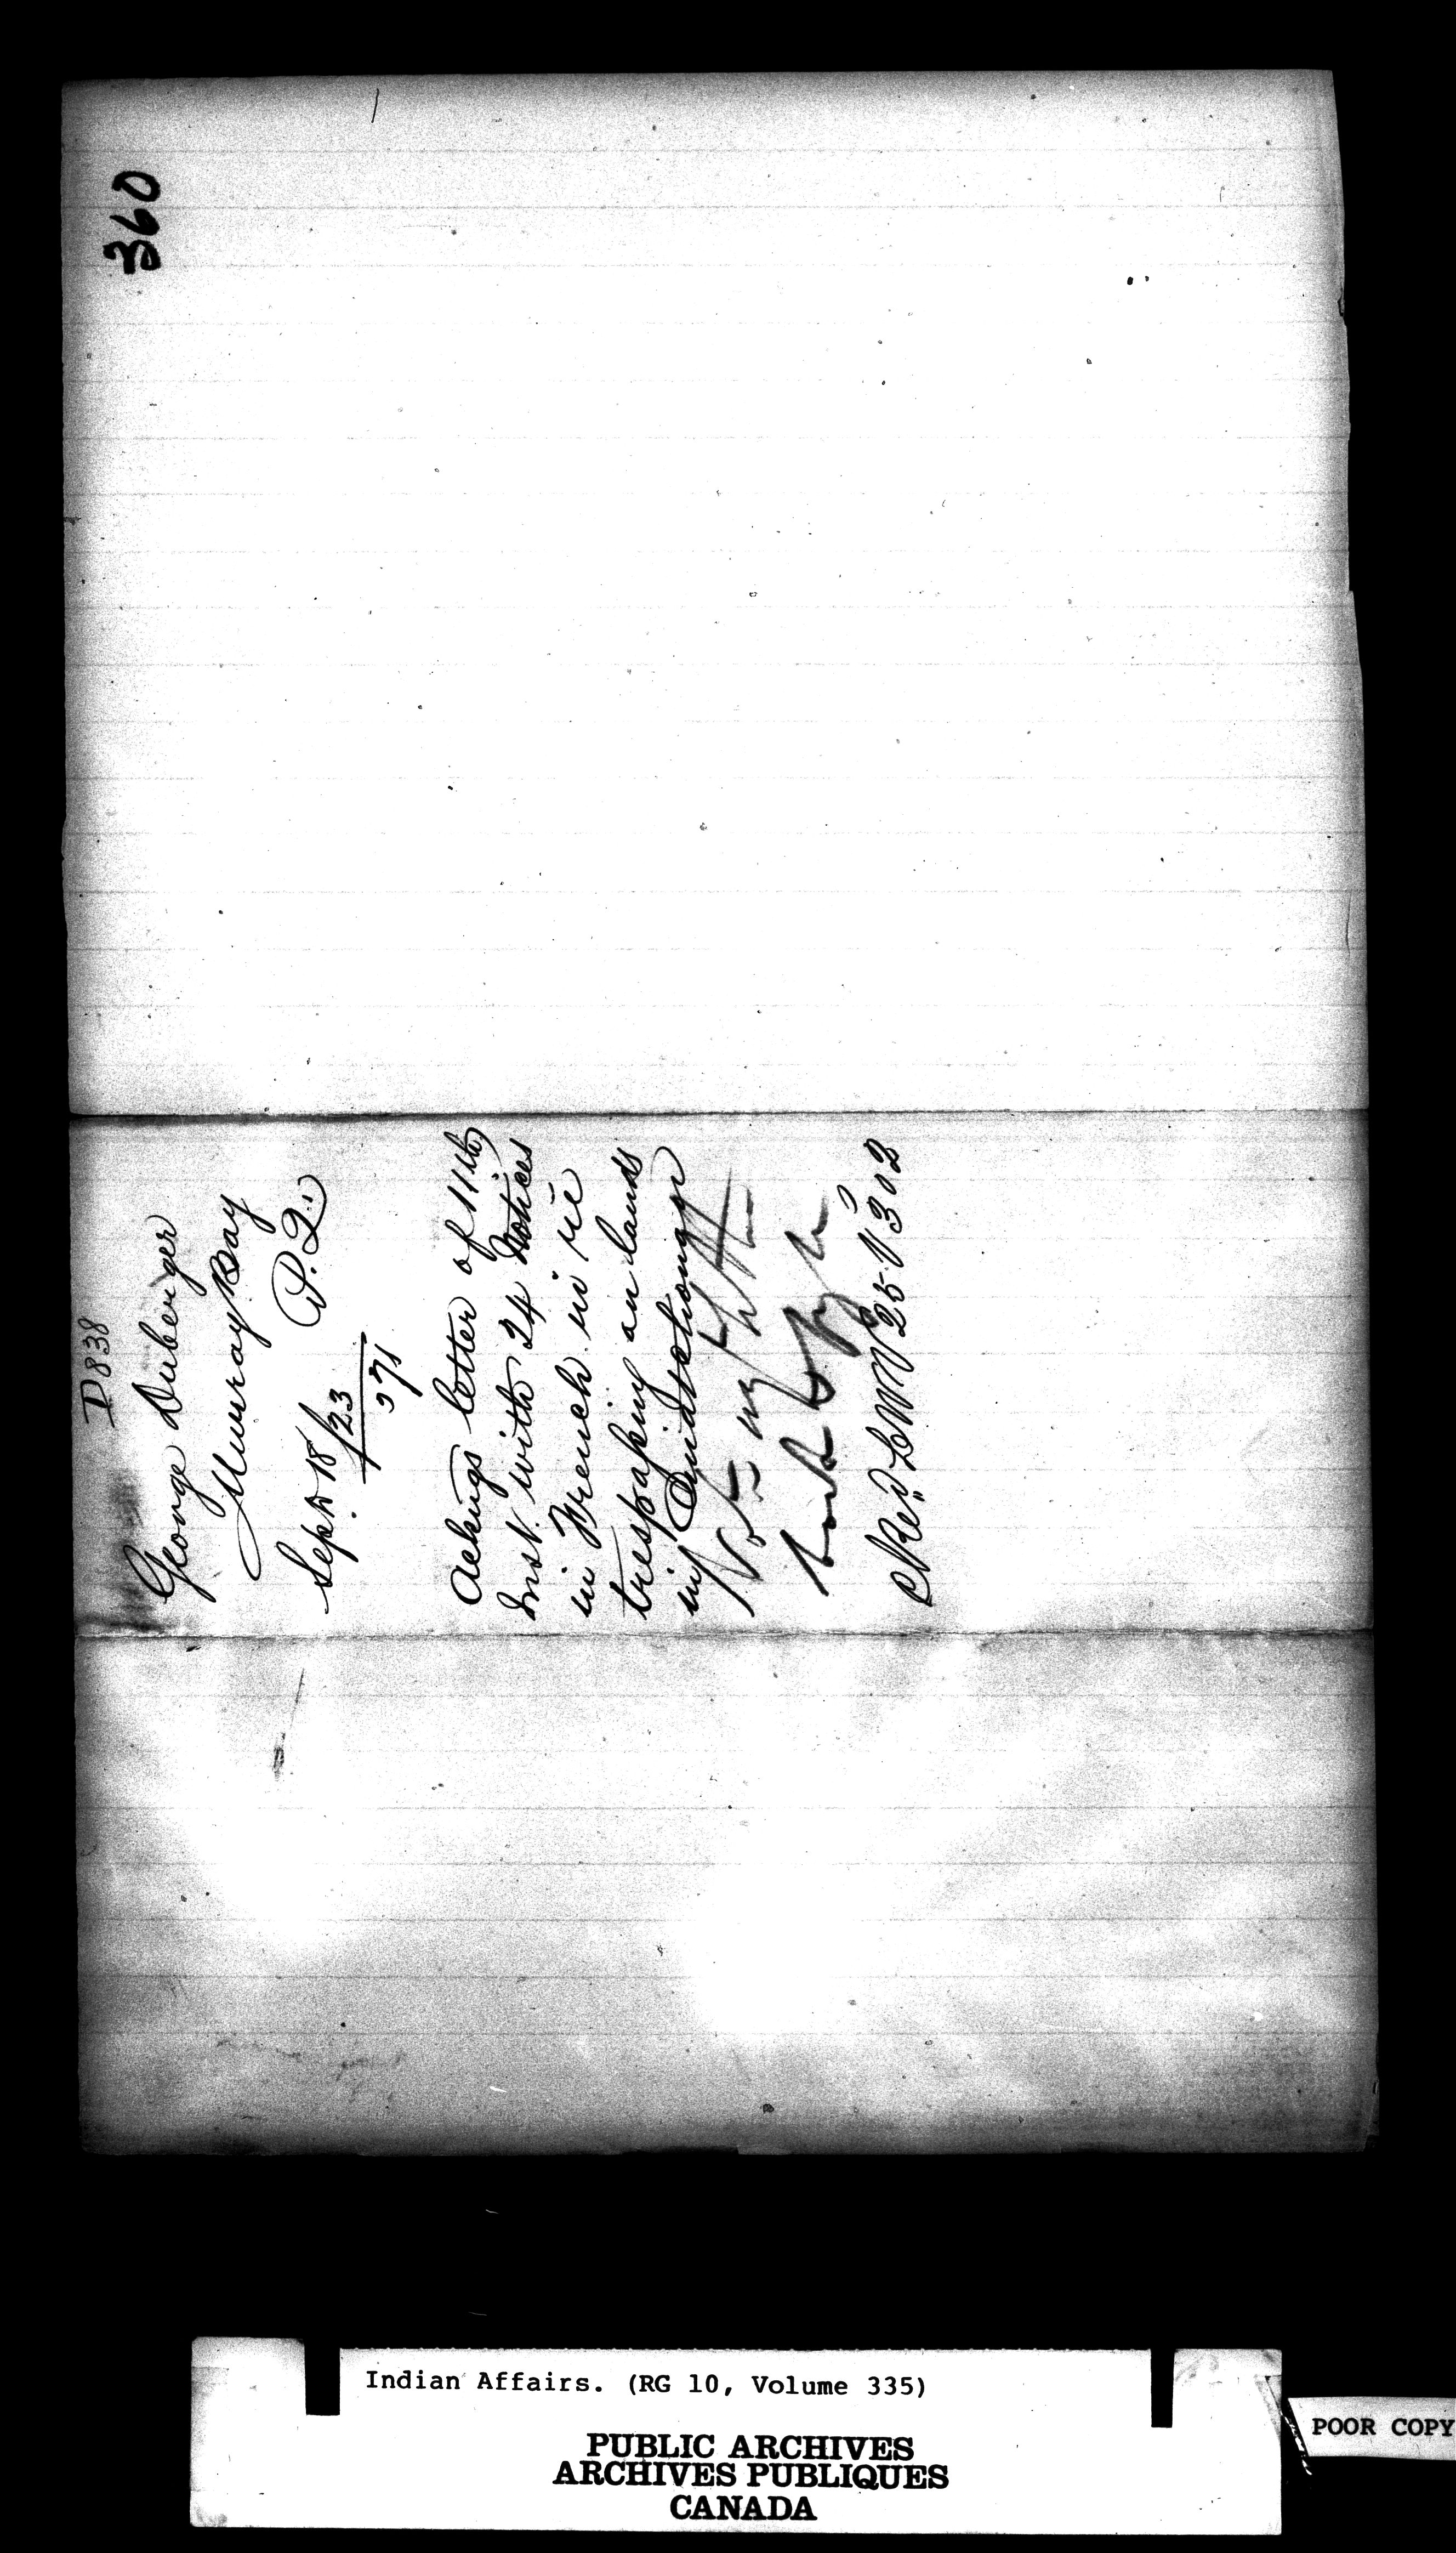 360
D838
George Duberger
Murray Bay
P.Q.
Sept 18/23
371
Ackngs letter of 11th
Inst. with 24 Notices
in French in re
trespassing on lands
in
Rec'd L W M 25 V 302
Indian Affairs. (RG 10, Volume 335)
PUBLIC ARCHIVES
ARCHIVES PUBLIQUES
CANADA
POOR COPY